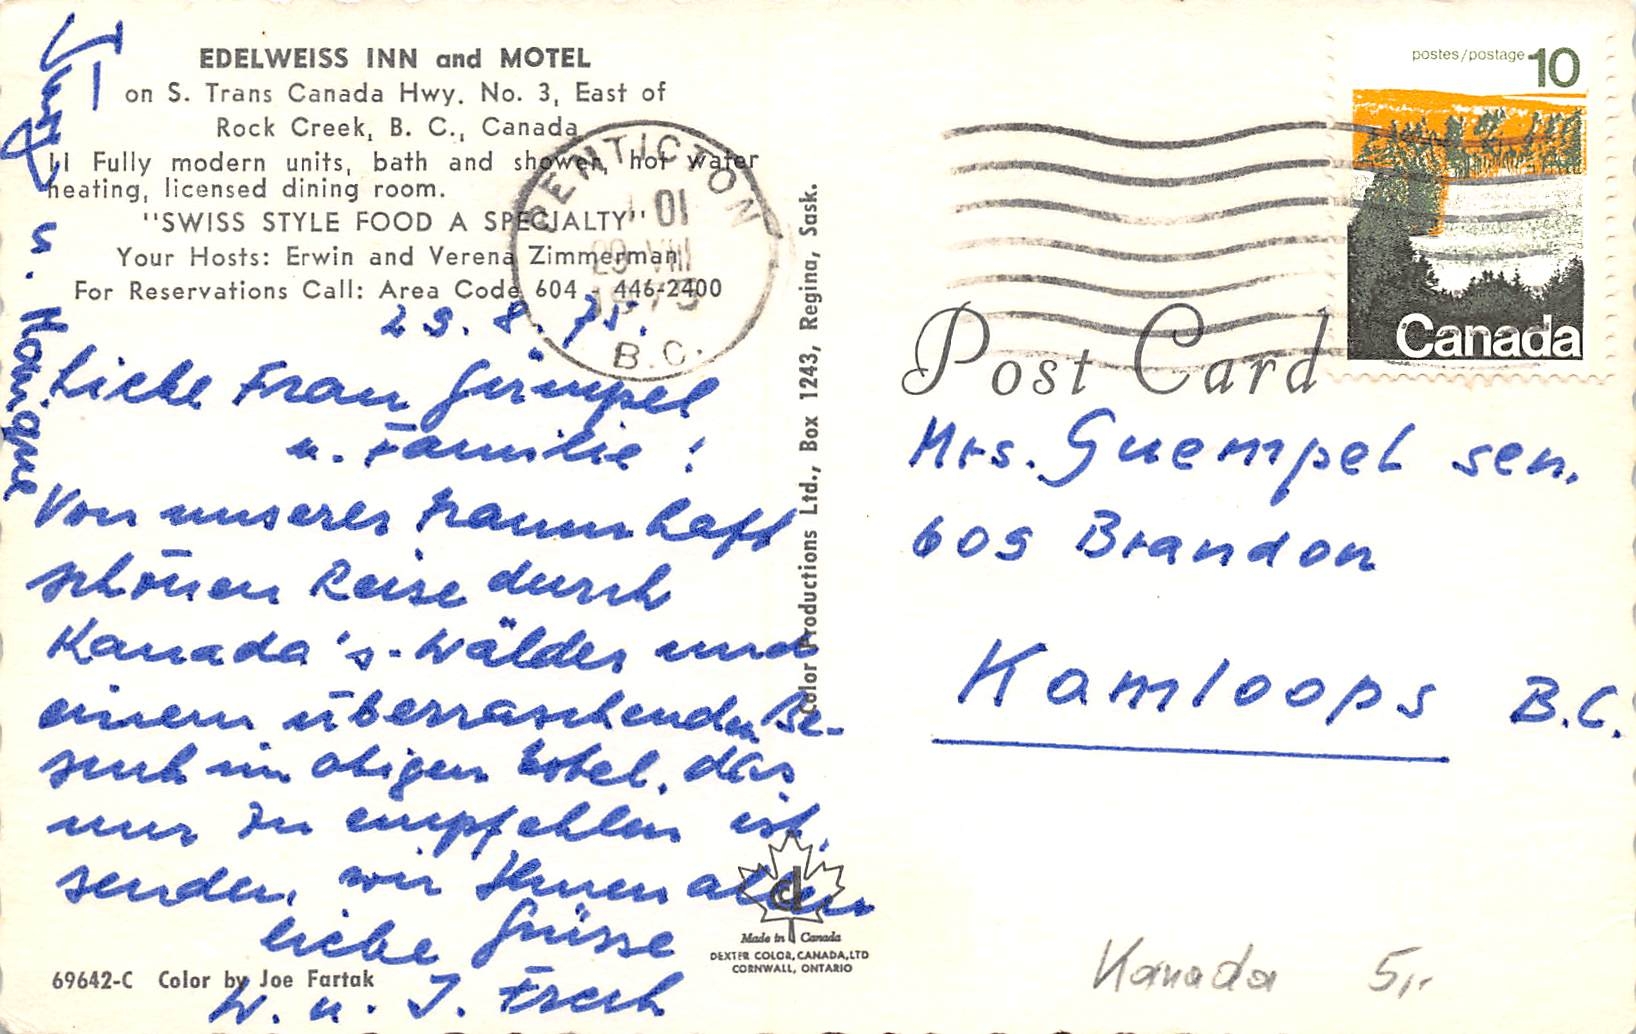 EDELWEISS INN and MOTEL
on S. Trans Canada Hwy. No. 3, East of
Rock Creek, B. C., Canada
11 Fully modern units, bath and shower, hot water
heating, licensed dining room.
"SWISS STYLE FOOD A SPECIALTY"
Your Hosts: Erwin and Verena Zimmerman
For Reservations Call: Area Code 604 - 446-2400
29.8.75.
Liebe Frau Gümpel
u. Familie!
Von unserer traumhaft
schönen Reise durch
Kanada's-Wälder und
einem überraschenden Be-
such im obigen Hotel, das
nur zu empfehlen ist,
senden wir Ihnen allen
liebe Grüsse
W. u. I. Frech
69642-C Color by Joe Fartak
Color Productions Ltd., Box 1243, Regina, Sask.
Made in Canada
DEXTER COLOR, CANADA, LTD
CORNWALL, ONTARIO
PENTICTON
01
29 VIII
1975
B.C.
postes/postage 10
Canada
Post Card
Mrs. Guempel sen.
605 Brandon
Kamloops B.C.
Kanada 5,-